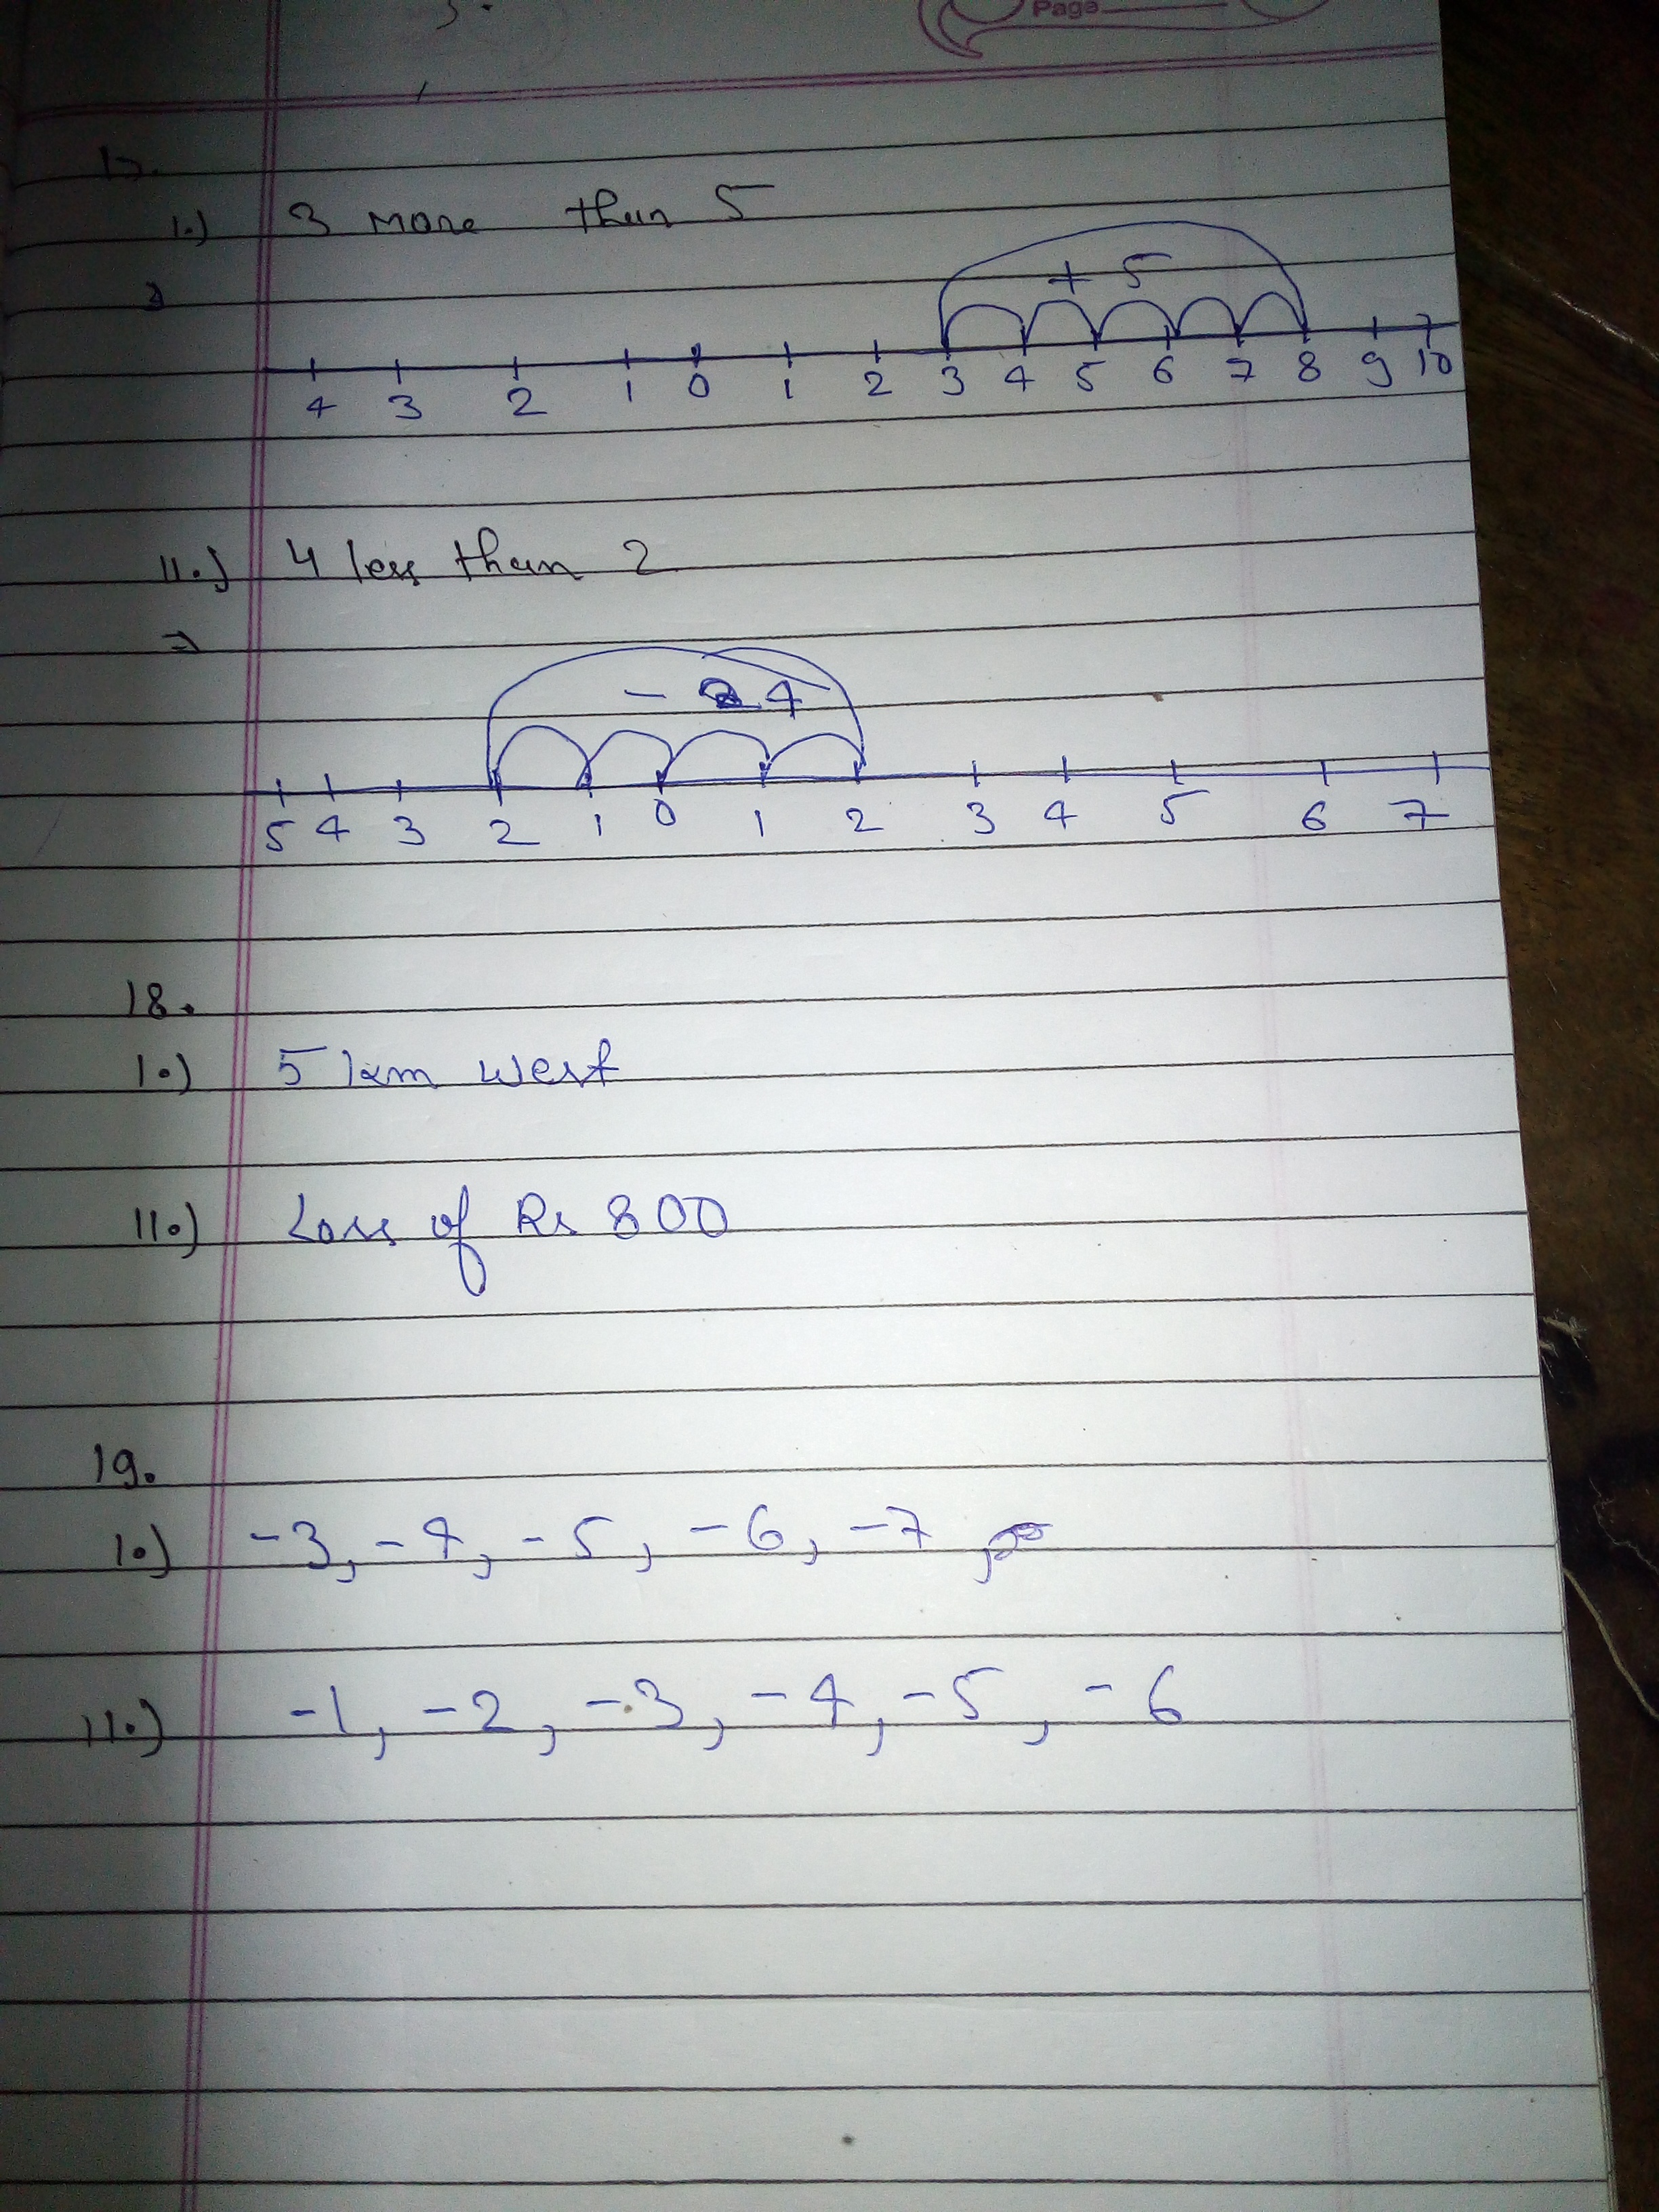 Page
17.
1.) 3 more than 5
+ 5
4 3 2 1 0 1 2 3 4 5 6 7 8 9 10
11.) 4 less than 2
⇒
- 4
5 4 3 2 1 0 1 2 3 4 5 6 7
18.
1.) 5 km west
11.) Loss of Rs 800
19.
1.) -3, -4, -5, -6, -7
11.) -1, -2, -3, -4, -5, -6